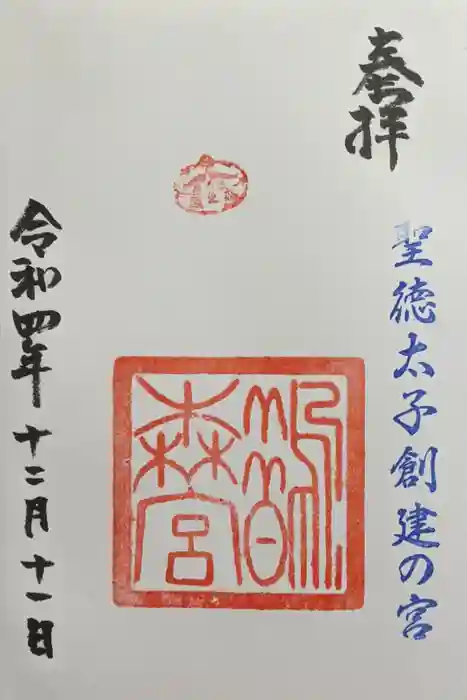 奉拝
聖徳太子創建の宮
鵲森宮
令和四年十二月十一日